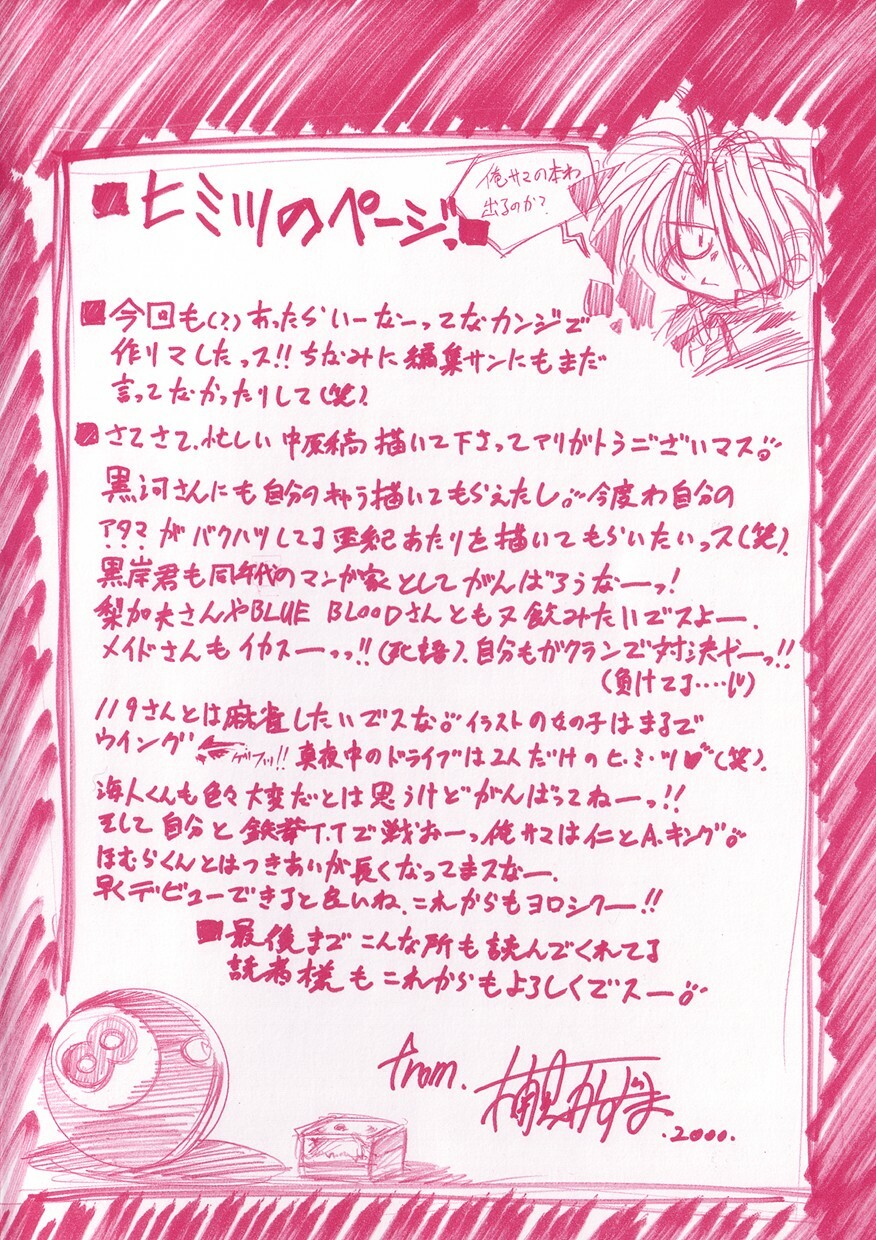 ■ヒミツのページ!■
俺サマの本わ
出るのか?
■今回も(?)あったらいーなーってなカンジで
作りマしたっス!!ちなみに編集サンにもまだ
言ってなかったりして(笑).
■さてさて、忙しい中原稿描いて下さってアリがトうございマス
黒河さんにも自分のキャラ描いてもらえたし。今度わ自分の
アタマがバクハツしてる亜紀あたりを描いてもらいたいっス(笑).
黒岸君も同年代のマンガ家としてがんばろうなーっ!
梨加夫さんやBLUE BLOODさんとも又飲みたいでスよー.
メイドさんもイカスーっっ!!(死語).自分もガクランで対決だーっ!!
(負けてる‥‥が)
119さんとは麻雀したいでスな。イラストの女の子はまるで
ウイング
ゲフッ!!真夜中のドライブは2人だけのヒ・ミ・ツ♥(笑).
海人くんも色々大変だとは思うけどがんばってねーっ!!
そして自分と鉄拳T.Tで戦おーっ俺サマは仁とA.キング。
ほむらくんとはつきあいが長くなってまスなー.
早くデビューできると良いね、これからもヨロシクー!!
■最後までこんな所も読んでくれてる
読者様もこれからもよろしくでスー。
from.
かずま
.2000.
8